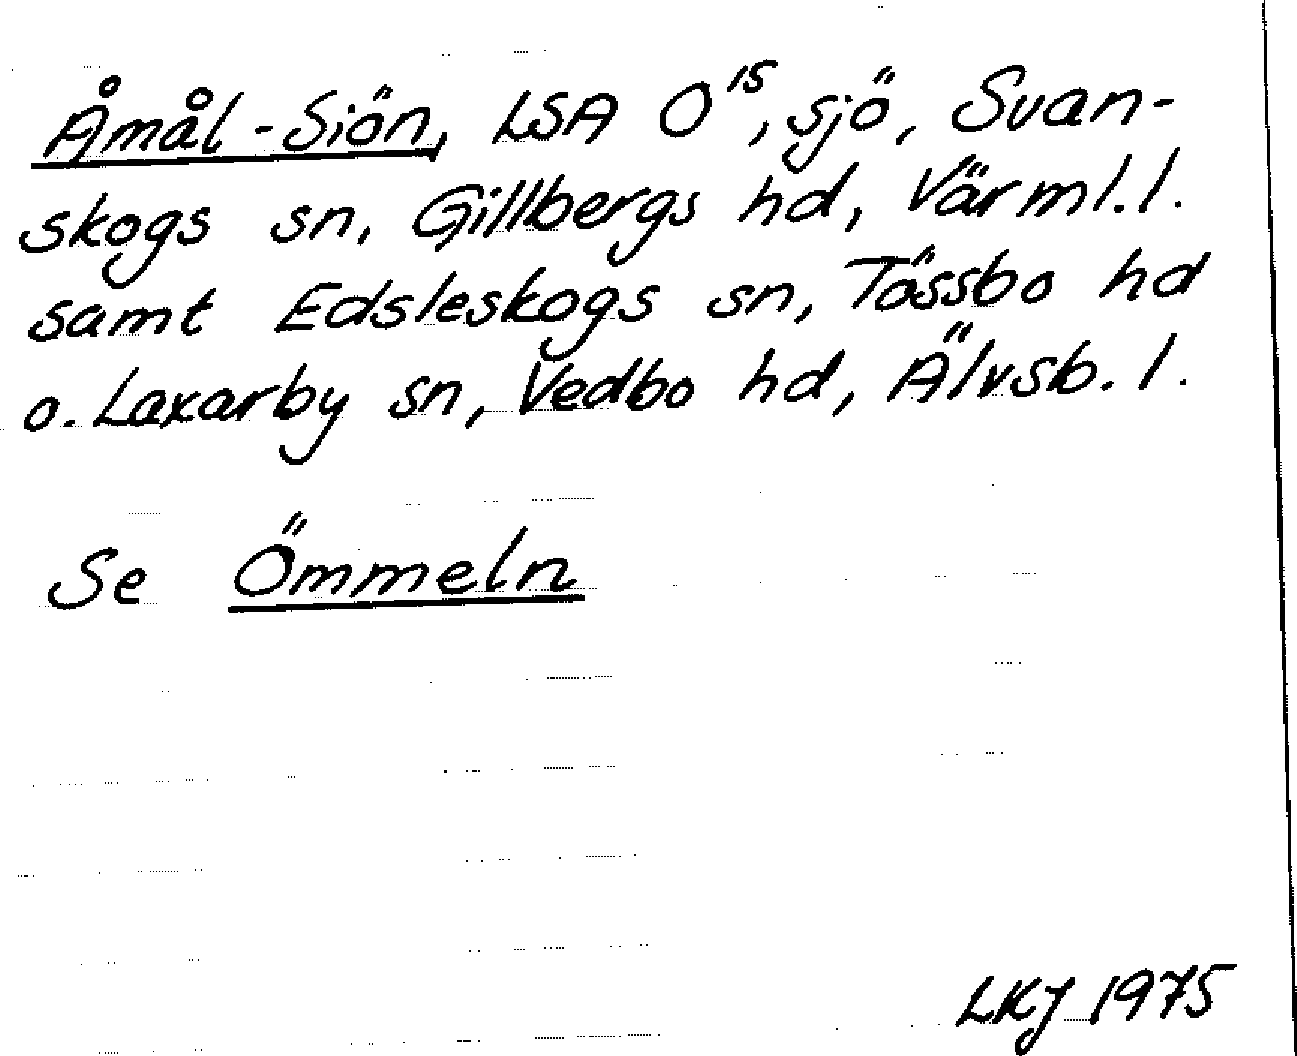 Åmål-Siön, LSA O¹⁵, sjö, Svan-
skogs sn, Gillbergs hd, Värml.l.
samt Edsleskogs sn, Tössbo hd
o. Laxarby sn, Vedbo hd, Älvsb.l.
Se Ömmeln
LKJ 1975